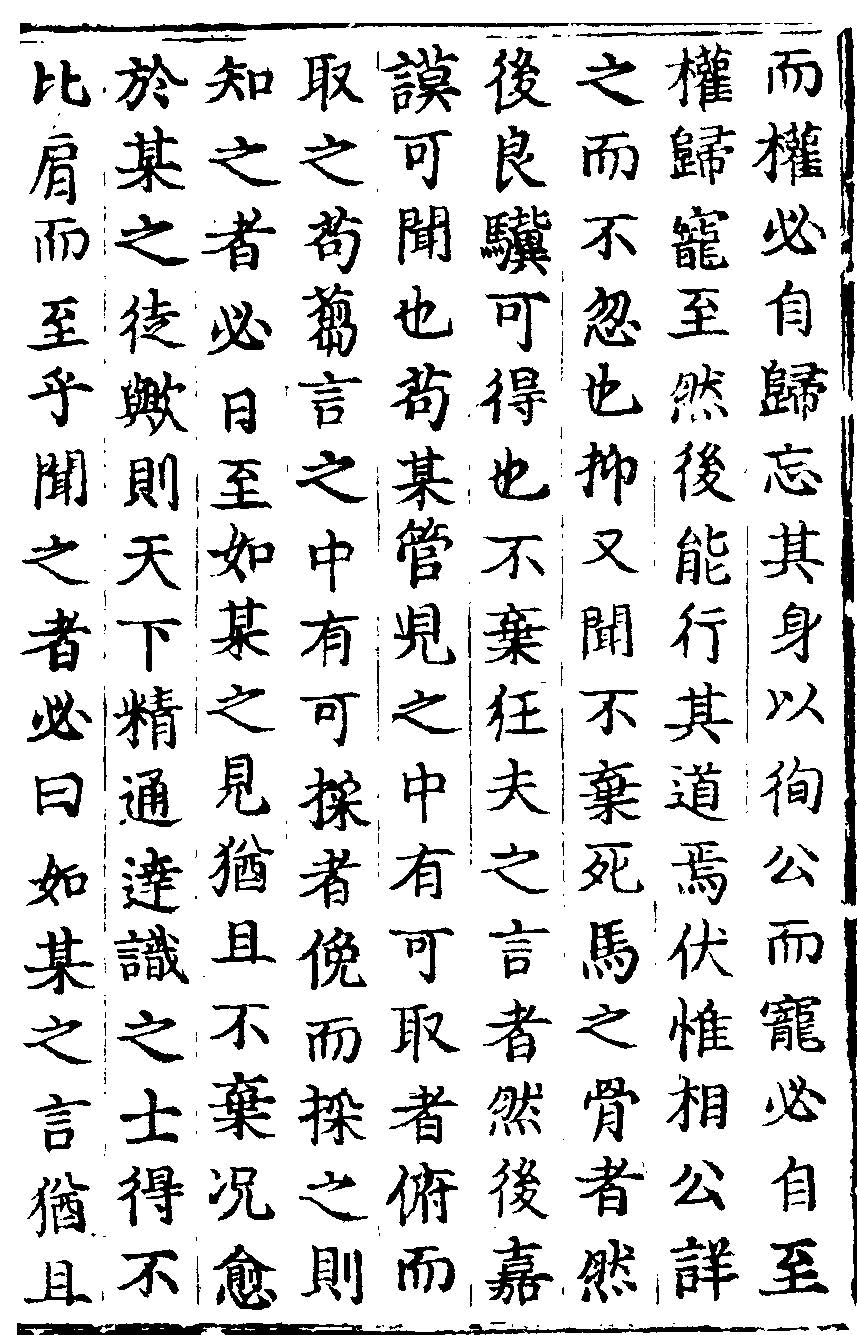 而權必自歸忘其身以徇公而寵必自至
權歸寵至然後能行其道焉伏惟相公詳
之而不忽也抑又聞不棄死馬之骨者然
後良驥可得也不棄狂夫之言者然後嘉
謨可聞也茍某管見之中有可取者俯而
取之茍蒭言之中有可採者俛而採之則
知之者必曰至如某之見猶且不棄况愈
於某之徒歟則天下精通達識之士得不
比肩而至乎聞之者必曰如某之言猶且